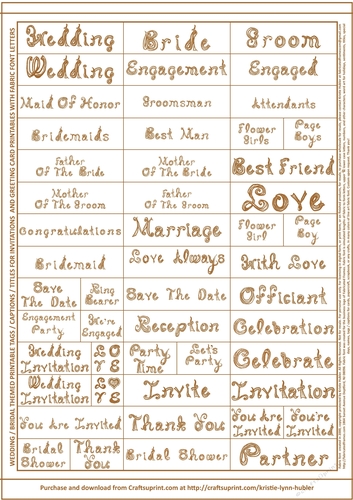 Wedding
Bride
Groom
Wedding
Engagement
Engaged
Maid Of Honor
Groomsman
Attendants
Bridemaids
Best Man
Flower
Girls
Page
Boys
Father
Of The Bride
Mother
Of The Bride
Best Friend
Mother
Of The Groom
Father
Of The Groom
Love
Congratulations
Marriage
Flower
Girl
Page
Boy
Bridemaid
Love Always
With Love
Save
The Date
Ring
Bearer
Save The Date
Officiant
Engagement
Party
We're
Engaged
Reception
Celebration
Wedding
Invitation
LO
VE
Party
Time
Let's
Party
Celebrate
Wedding
Invitation
L♥
VE
Invite
Invitation
You Are Invited
Thank You
You Are
Invited
You're
Invited
Bridal
Shower
Thank
You
Bridal
Shower
Thank You
Partner
WEDDING / BRIDAL THEMED PRINTABLE TAGS / CAPTIONS / TITLES FOR INVITATIONS AND GREETING CARD PRINTABLES WITH FABRIC FONT LETTERS
Purchase and download from Craftsuprint.com at http://craftsuprint.com/kristie-lynn-hubler